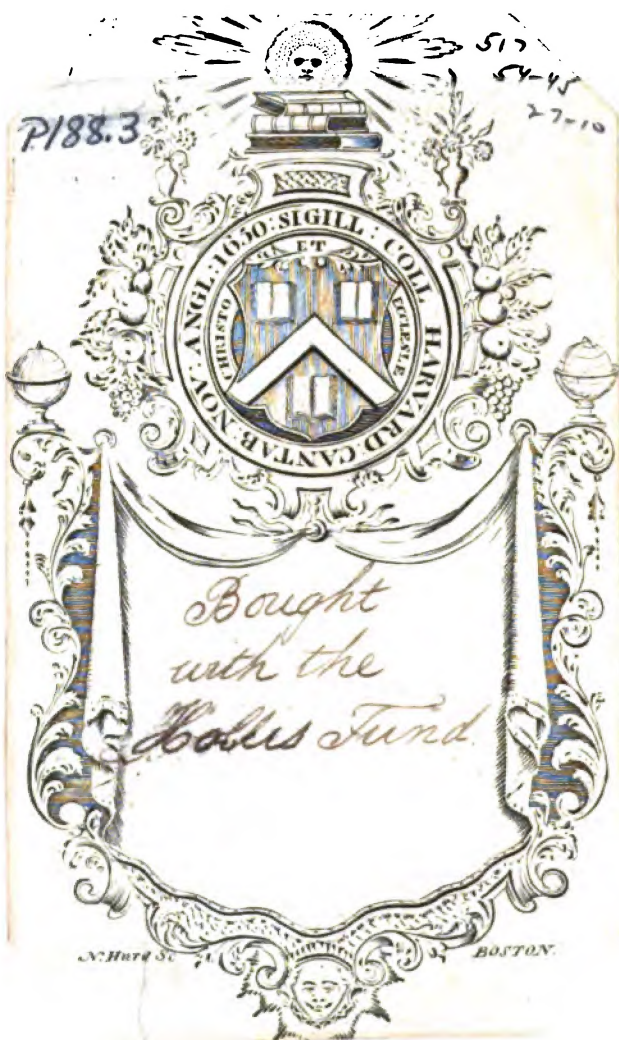 517
54-45
27-10
P188.3
SIGILL: COLL HARVARD CANTAB: NOV: ANGL: 1650:
ET
CHRISTO
ECCLESIÆ
Bought
with the
Hollis Fund
N. Hurd Sc
BOSTON.